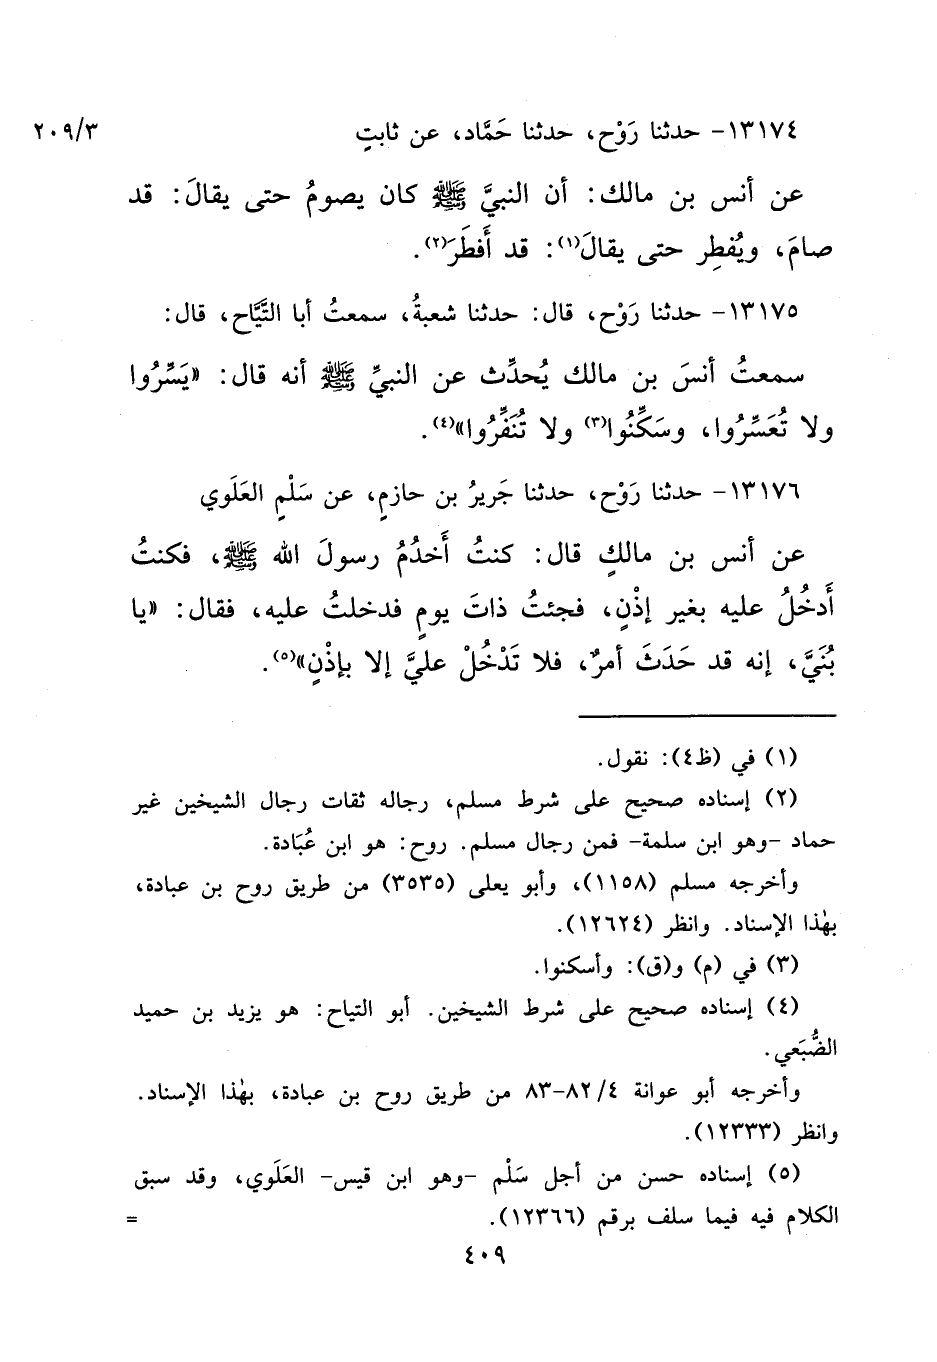 ١٣١٧٤- حدثنا رَوْح، حدثنا حَمَّاد، عن ثابتٍ
٢٠٩/٣
عن أنس بن مالك: أن النبيَّ ﷺ كان يصومُ حتى يقالَ: قد
صامَ، ويُفطِر حتى يقالَ(١): قد أَفطَرَ(٢).
١٣١٧٥- حدثنا رَوْح، قال: حدثنا شعبةُ، سمعتُ أبا التَّيَّاح، قال:
سمعتُ أنسَ بن مالك يُحدِّث عن النبيِّ ﷺ أنه قال: «يَسِّرُوا
ولا تُعَسِّرُوا، وسَكِّنُوا(٣) ولا تُنَفِّرُوا»(٤).
١٣١٧٦- حدثنا رَوْح، حدثنا جَريرُ بن حازمٍ، عن سَلْمٍ العَلَوي
عن أنس بن مالكٍ قال: كنتُ أَخدُمُ رسولَ الله ﷺ، فكنتُ
أَدخُلُ عليه بغير إذْنٍ، فجئتُ ذاتَ يومٍ فدخلتُ عليه، فقال: «يا
بُنَيَّ، إنه قد حَدَثَ أمرٌ، فلا تَدْخُلْ عليَّ إلا بإذْنٍ»(٥).
(١) في (ظ٤): نقول.
(٢) إسناده صحيح على شرط مسلم، رجاله ثقات رجال الشيخين غير
حماد -وهو ابن سلمة- فمن رجال مسلم. روح: هو ابن عُبَادة.
وأخرجه مسلم (١١٥٨)، وأبو يعلى (٣٥٣٥) من طريق روح بن عبادة،
بهٰذا الإسناد. وانظر (١٢٦٢٤).
(٣) في (م) و(ق): وأسكنوا.
(٤) إسناده صحيح على شرط الشيخين. أبو التياح: هو يزيد بن حميد
الضُّبَعي.
وأخرجه أبو عوانة ٨٢/٤-٨٣ من طريق روح بن عبادة، بهٰذا الإسناد.
وانظر (١٢٣٣٣).
(٥) إسناده حسن من أجل سَلْم -وهو ابن قيس- العَلَوي، وقد سبق
الكلام فيه فيما سلف برقم (١٢٣٦٦). =
٤٠٩